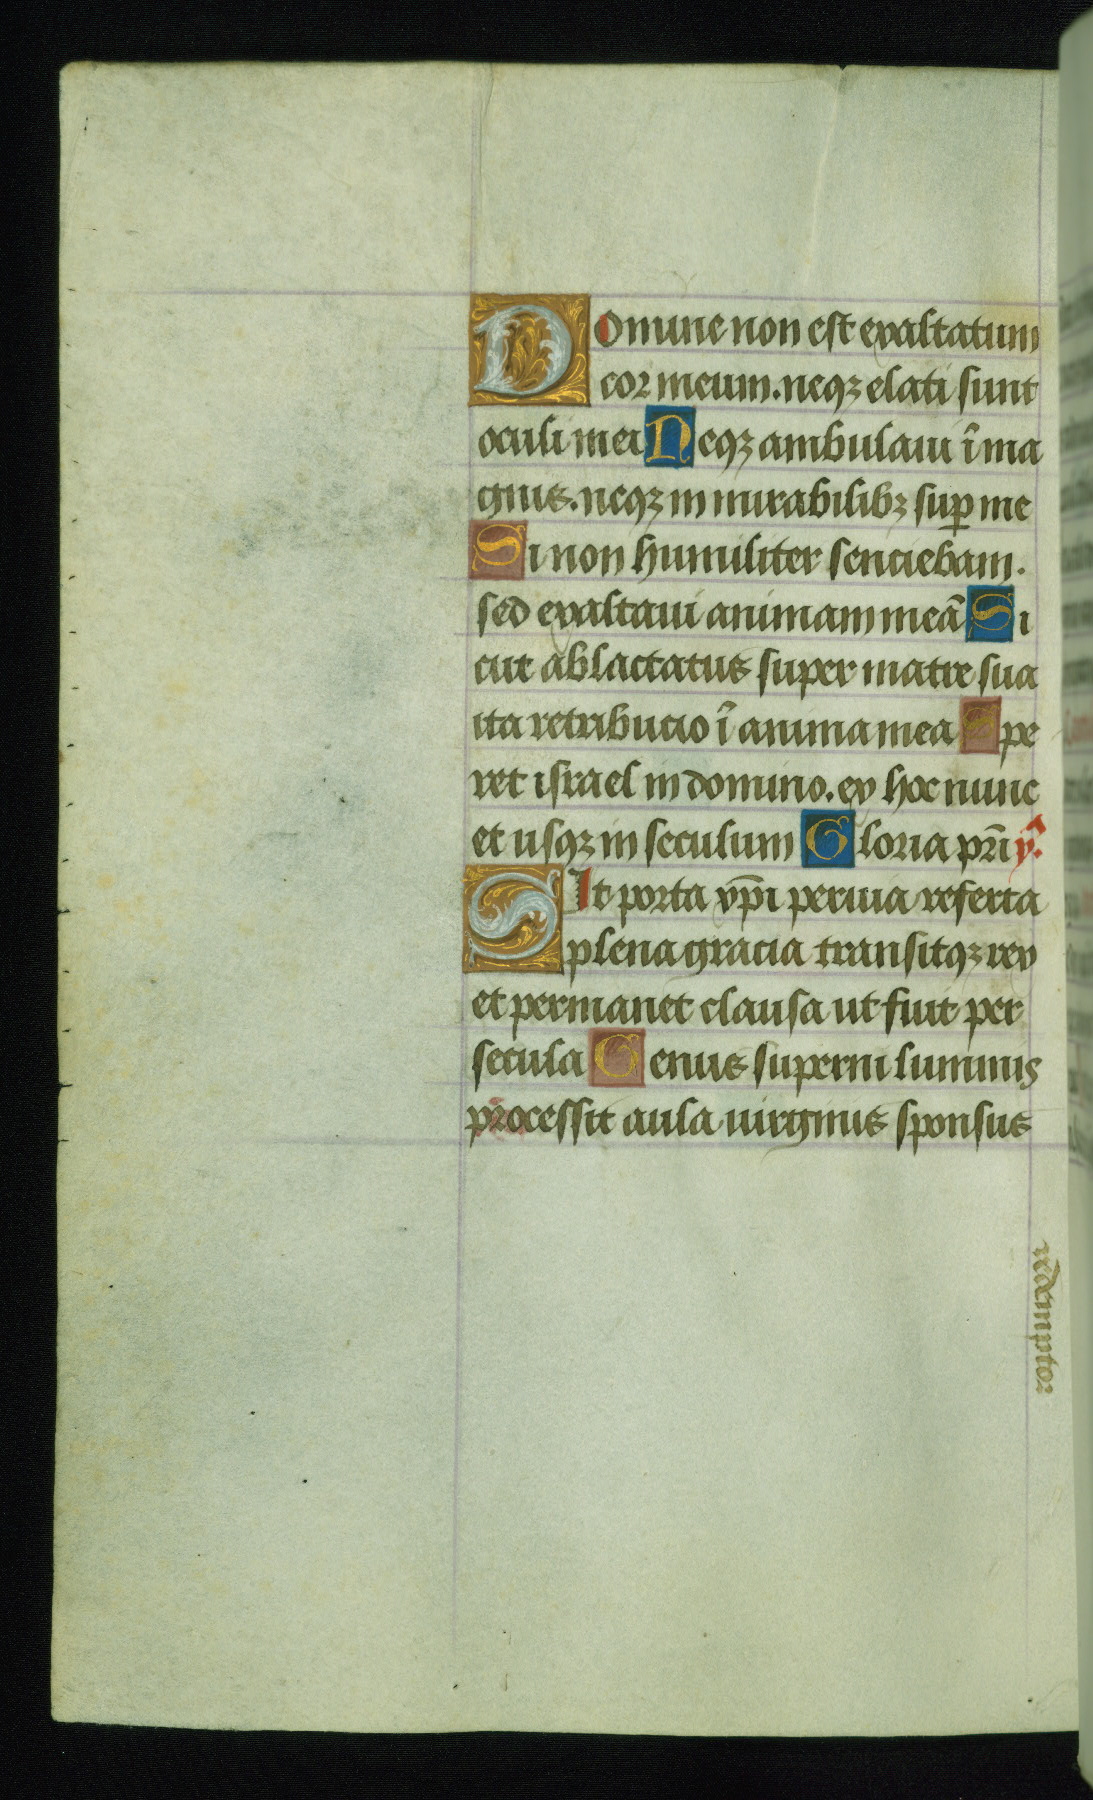 Domine non est exaltatum
cor meum. neqꝫ elati sunt
oculi mei Neqꝫ ambulaui ī ma
gnis. neqꝫ in mirabilibꝫ suꝑ me
Si non humiliter senciebam.
sed exaltaui animam meā Si
cut ablactatus super matre sua
ita retribucio ī anima mea Spe
ret israel in domino. ex hoc nunc
et usqꝫ in seculum Gloria pr̄i ẏ.
Sit porta xp̄i peruia referta
plena gracia transitqꝫ rex
et permanet clausa ut fuit per
secula Genus superni luminis
processit aula uirginis sponsus
redemptor